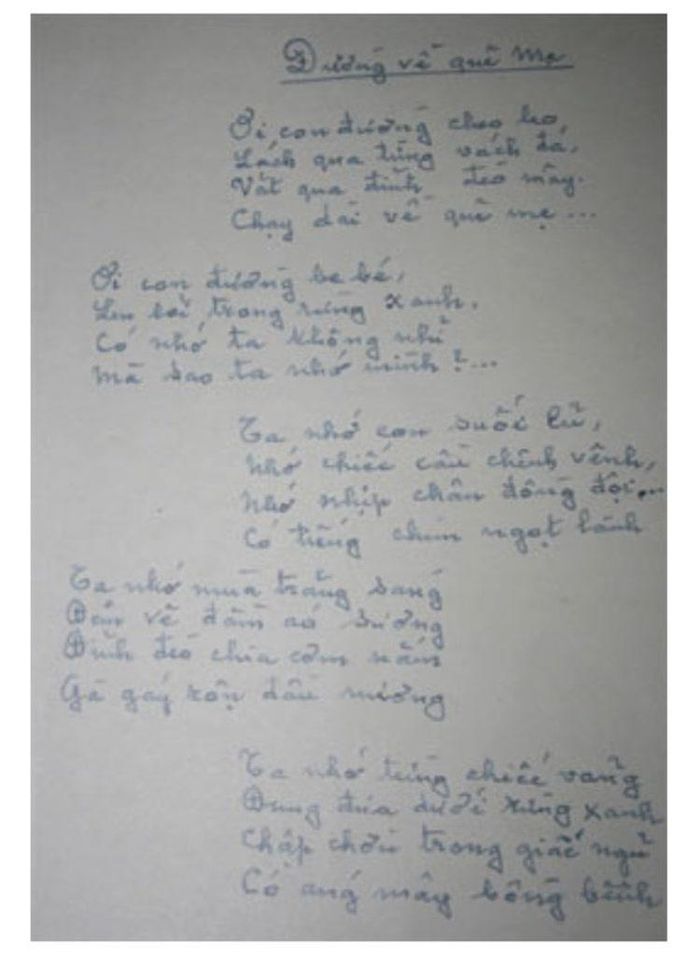 Đường về quê mẹ
Ơi con đường cheo leo,
Lách qua từng vách đá,
Vắt qua đỉnh đèo mây.
Chạy dài về quê mẹ...
Ơi con đường be bé,
Len lỏi trong rừng xanh.
Có nhớ ta không nhỉ
Mà sao ta nhớ mình?...
Ta nhớ con suối lũ,
Nhớ chiếc cầu chênh vênh,
Nhớ nhịp chân đồng đội...
Có tiếng chim ngọt lành
Ta nhớ mùa trăng sáng
Bản về đầm áo sương
Đỉnh đèo chia cơm nắm
Gà gáy rộn đầu mường
Ta nhớ từng chiếc vàng
Đung đưa dưới rừng xanh
Chập chờn trong giấc ngủ
Có áng mây bồng bềnh